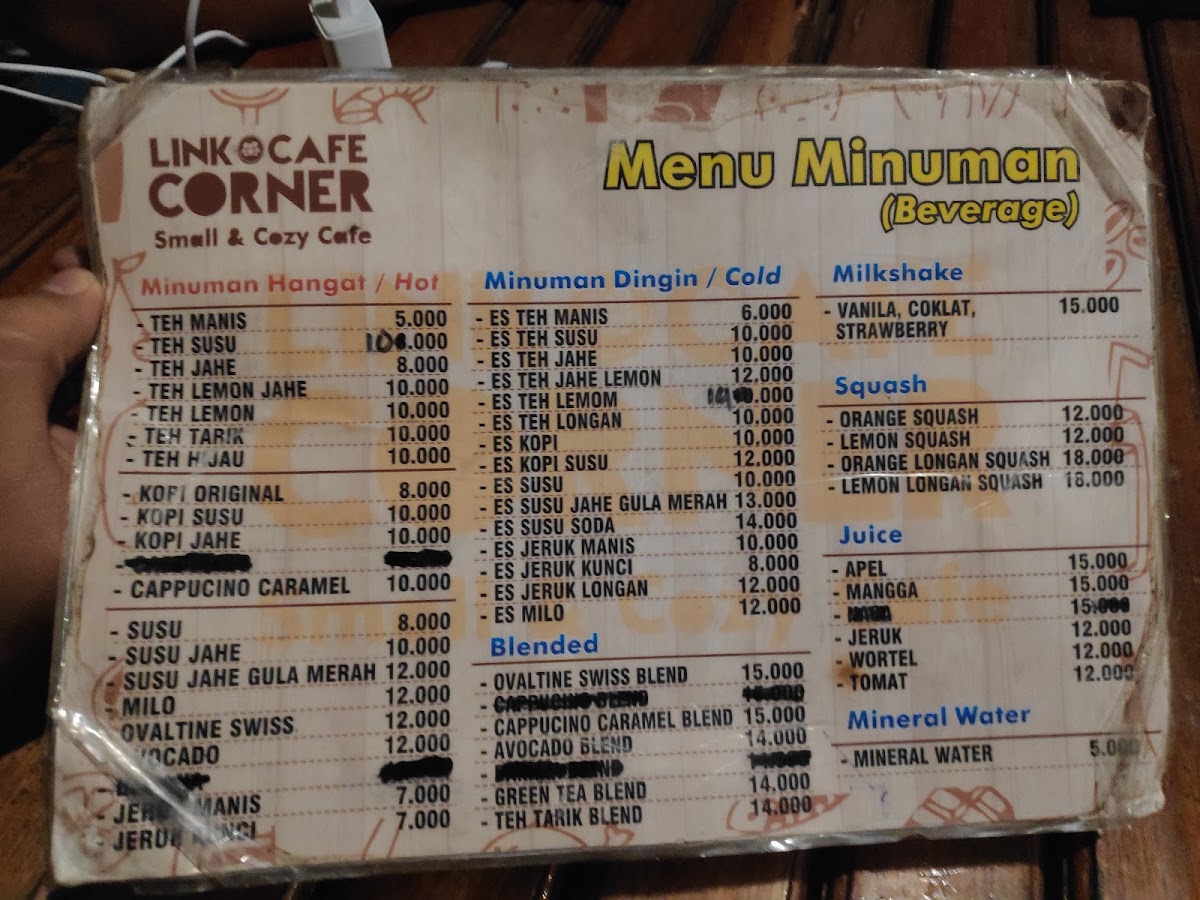 LINK CAFE
CORNER
Small & Cozy Cafe
Menu Minuman
(Beverage)
Minuman Hangat / Hot
- TEH MANIS 5.000
- TEH SUSU 10.000
- TEH JAHE 8.000
- TEH LEMON JAHE 10.000
- TEH LEMON 10.000
- TEH TARIK 10.000
- TEH HIJAU 10.000
- KOPI ORIGINAL 8.000
- KOPI SUSU 10.000
- KOPI JAHE 10.000
- CAPPUCINO CARAMEL 10.000
- SUSU 8.000
- SUSU JAHE 10.000
- SUSU JAHE GULA MERAH 12.000
- MILO 12.000
OVALTINE SWISS 12.000
AVOCADO 12.000
- JERUK MANIS 7.000
- JERUK KUNCI 7.000
Minuman Dingin / Cold
- ES TEH MANIS 6.000
- ES TEH SUSU 10.000
- ES TEH JAHE 10.000
- ES TEH JAHE LEMON 12.000
- ES TEH LEMOM .000
- ES TEH LONGAN 10.000
- ES KOPI 10.000
- ES KOPI SUSU 12.000
- ES SUSU 10.000
- ES SUSU JAHE GULA MERAH 13.000
- ES SUSU SODA 14.000
- ES JERUK MANIS 10.000
- ES JERUK KUNCI 8.000
- ES JERUK LONGAN 12.000
- ES MILO 12.000
Blended
- OVALTINE SWISS BLEND 15.000
- CAPPUCINO BLEND 15.000
- CAPPUCINO CARAMEL BLEND 15.000
- AVOCADO BLEND 14.000
- BLEND
- GREEN TEA BLEND 14.000
- TEH TARIK BLEND 14.000
Milkshake
- VANILA, COKLAT, 15.000
STRAWBERRY
Squash
- ORANGE SQUASH 12.000
- LEMON SQUASH 12.000
- ORANGE LONGAN SQUASH 18.000
- LEMON LONGAN SQUASH 18.000
Juice
- APEL 15.000
- MANGGA 15.000
- 15.000
- JERUK 12.000
- WORTEL 12.000
- TOMAT 12.000
Mineral Water
- MINERAL WATER 5.000